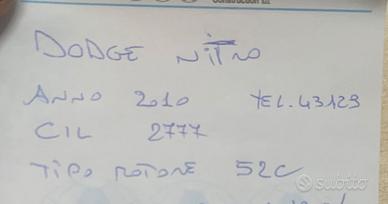 Construction
DODGE NITRO
ANNO 2010 TEL. 43129
CIL 2777
TIPO MOTORE 52C
subito